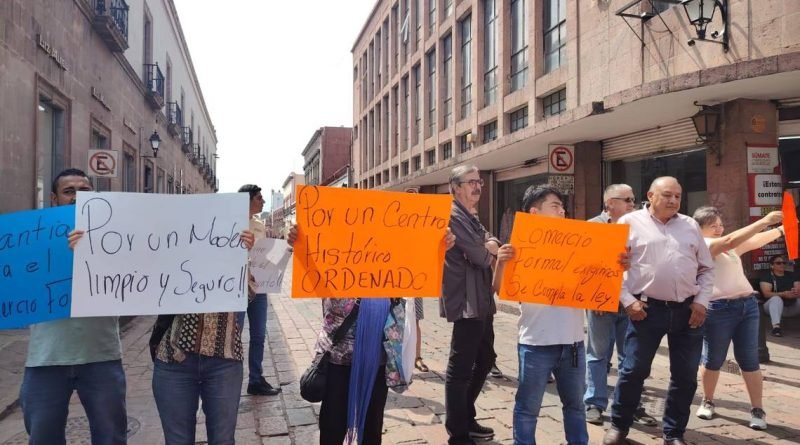 antía
a el
rcio Fo
Por un Madero
limpio y Seguro!!
Por un Centro
Histórico
ORDENADO
Comercio
Formal exigimos
Se Cumpla la ley.
E
E
SÚMATE
¡Estamos
contratando